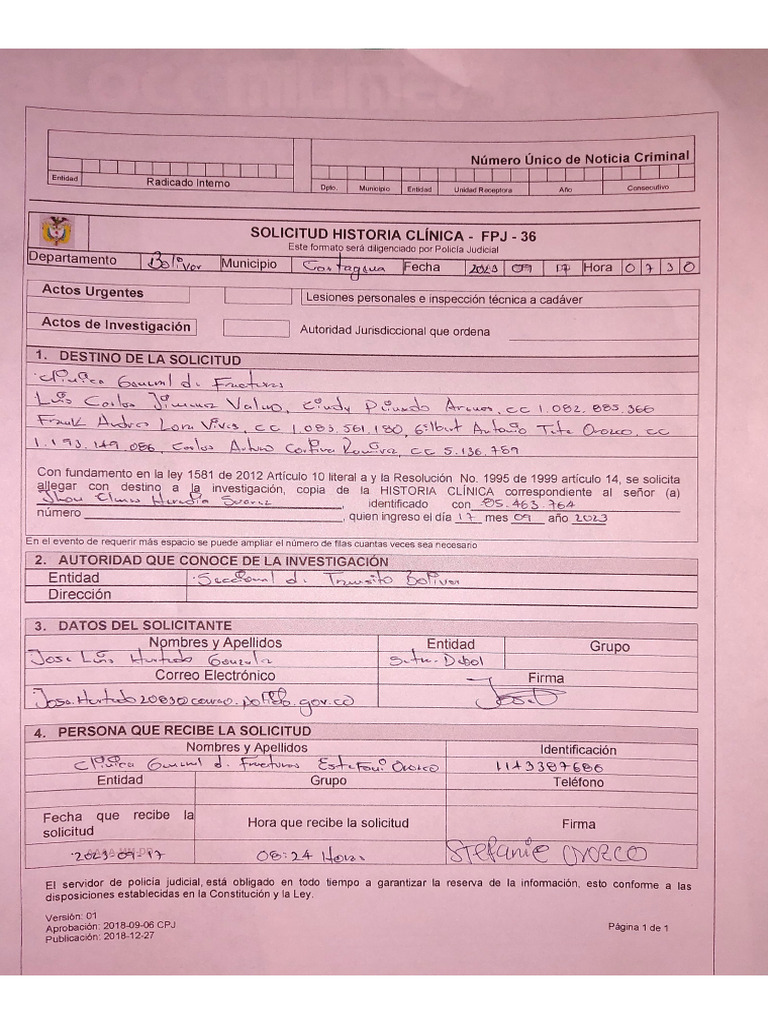 Número Único de Noticia Criminal
Entidad
Radicado Interno
Dpto. Municipio Entidad Unidad Receptora Año Consecutivo
SOLICITUD HISTORIA CLÍNICA - FPJ - 36
Este formato será diligenciado por Policía Judicial
Departamento Bolivar Municipio Cartagena Fecha 2023 09 17 Hora 0 7 3 0
Actos Urgentes
Lesiones personales e inspección técnica a cadáver
Actos de Investigación
Autoridad Jurisdiccional que ordena
1. DESTINO DE LA SOLICITUD
Clinica General de Fracturas
Luis Carlos Jimenez Cindy Arenas, CC 1.082.885.366
Frank Andres Lora Vives, CC 1.083.561.180, Gilbert Antonio Orozco, CC
1.193.149.086, Carlos Arturo Ramirez, CC 5.136.789
Con fundamento en la ley 1581 de 2012 Artículo 10 literal a y la Resolución No. 1995 de 1999 artículo 14, se solicita
allegar con destino a la investigación, copia de la HISTORIA CLÍNICA correspondiente al señor (a)
Jhon Heredia Suarez, identificado con 85.463.764
número , quien ingreso el día 17 mes 09 año 2023
En el evento de requerir más espacio se puede ampliar el número de filas cuantas veces sea necesario
2. AUTORIDAD QUE CONOCE DE LA INVESTIGACIÓN
Entidad Seccional de Transito Bolivar
Dirección
3. DATOS DEL SOLICITANTE
Nombres y Apellidos Entidad Grupo
Jose Luis Hurtado Gonzalez Setra-Debol
Correo Electrónico Firma
4. PERSONA QUE RECIBE LA SOLICITUD
Nombres y Apellidos Identificación
Clinica General de Fracturas Estefani Orozco 1143387686
Entidad Grupo Teléfono
Fecha que recibe la
solicitud
Hora que recibe la solicitud
Firma
2023-09-17 08:24 Horas Stefanie Orozco
El servidor de policía judicial, está obligado en todo tiempo a garantizar la reserva de la información, esto conforme a las
disposiciones establecidas en la Constitución y la Ley.
Versión: 01
Aprobación: 2018-09-06 CPJ
Publicación: 2018-12-27
Página 1 de 1